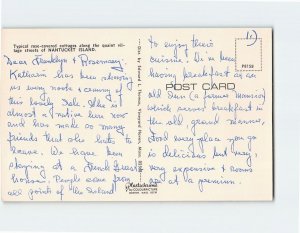 Typical rose-covered cottages along the quaint vil-
lage streets of NANTUCKET ISLAND.
Dear Franklyn & Rosemary,
Kathari has been showing
us every nook & cranny of
this lovely Isle. She is
almost a "native here now"
and has made so many
friends that she hates to
leave. We have been
staying at a French Guest
house. People come from
all points of the Island
to enjoy their
cuisine. We've been
having breakfast at an
old Inn (a former mansion)
which serves breakfast in
the old grand manner.
Food every place you go
is delicious but very,
very expensive & rooms
are at a premium.
POST CARD
P8759
Mastachrome